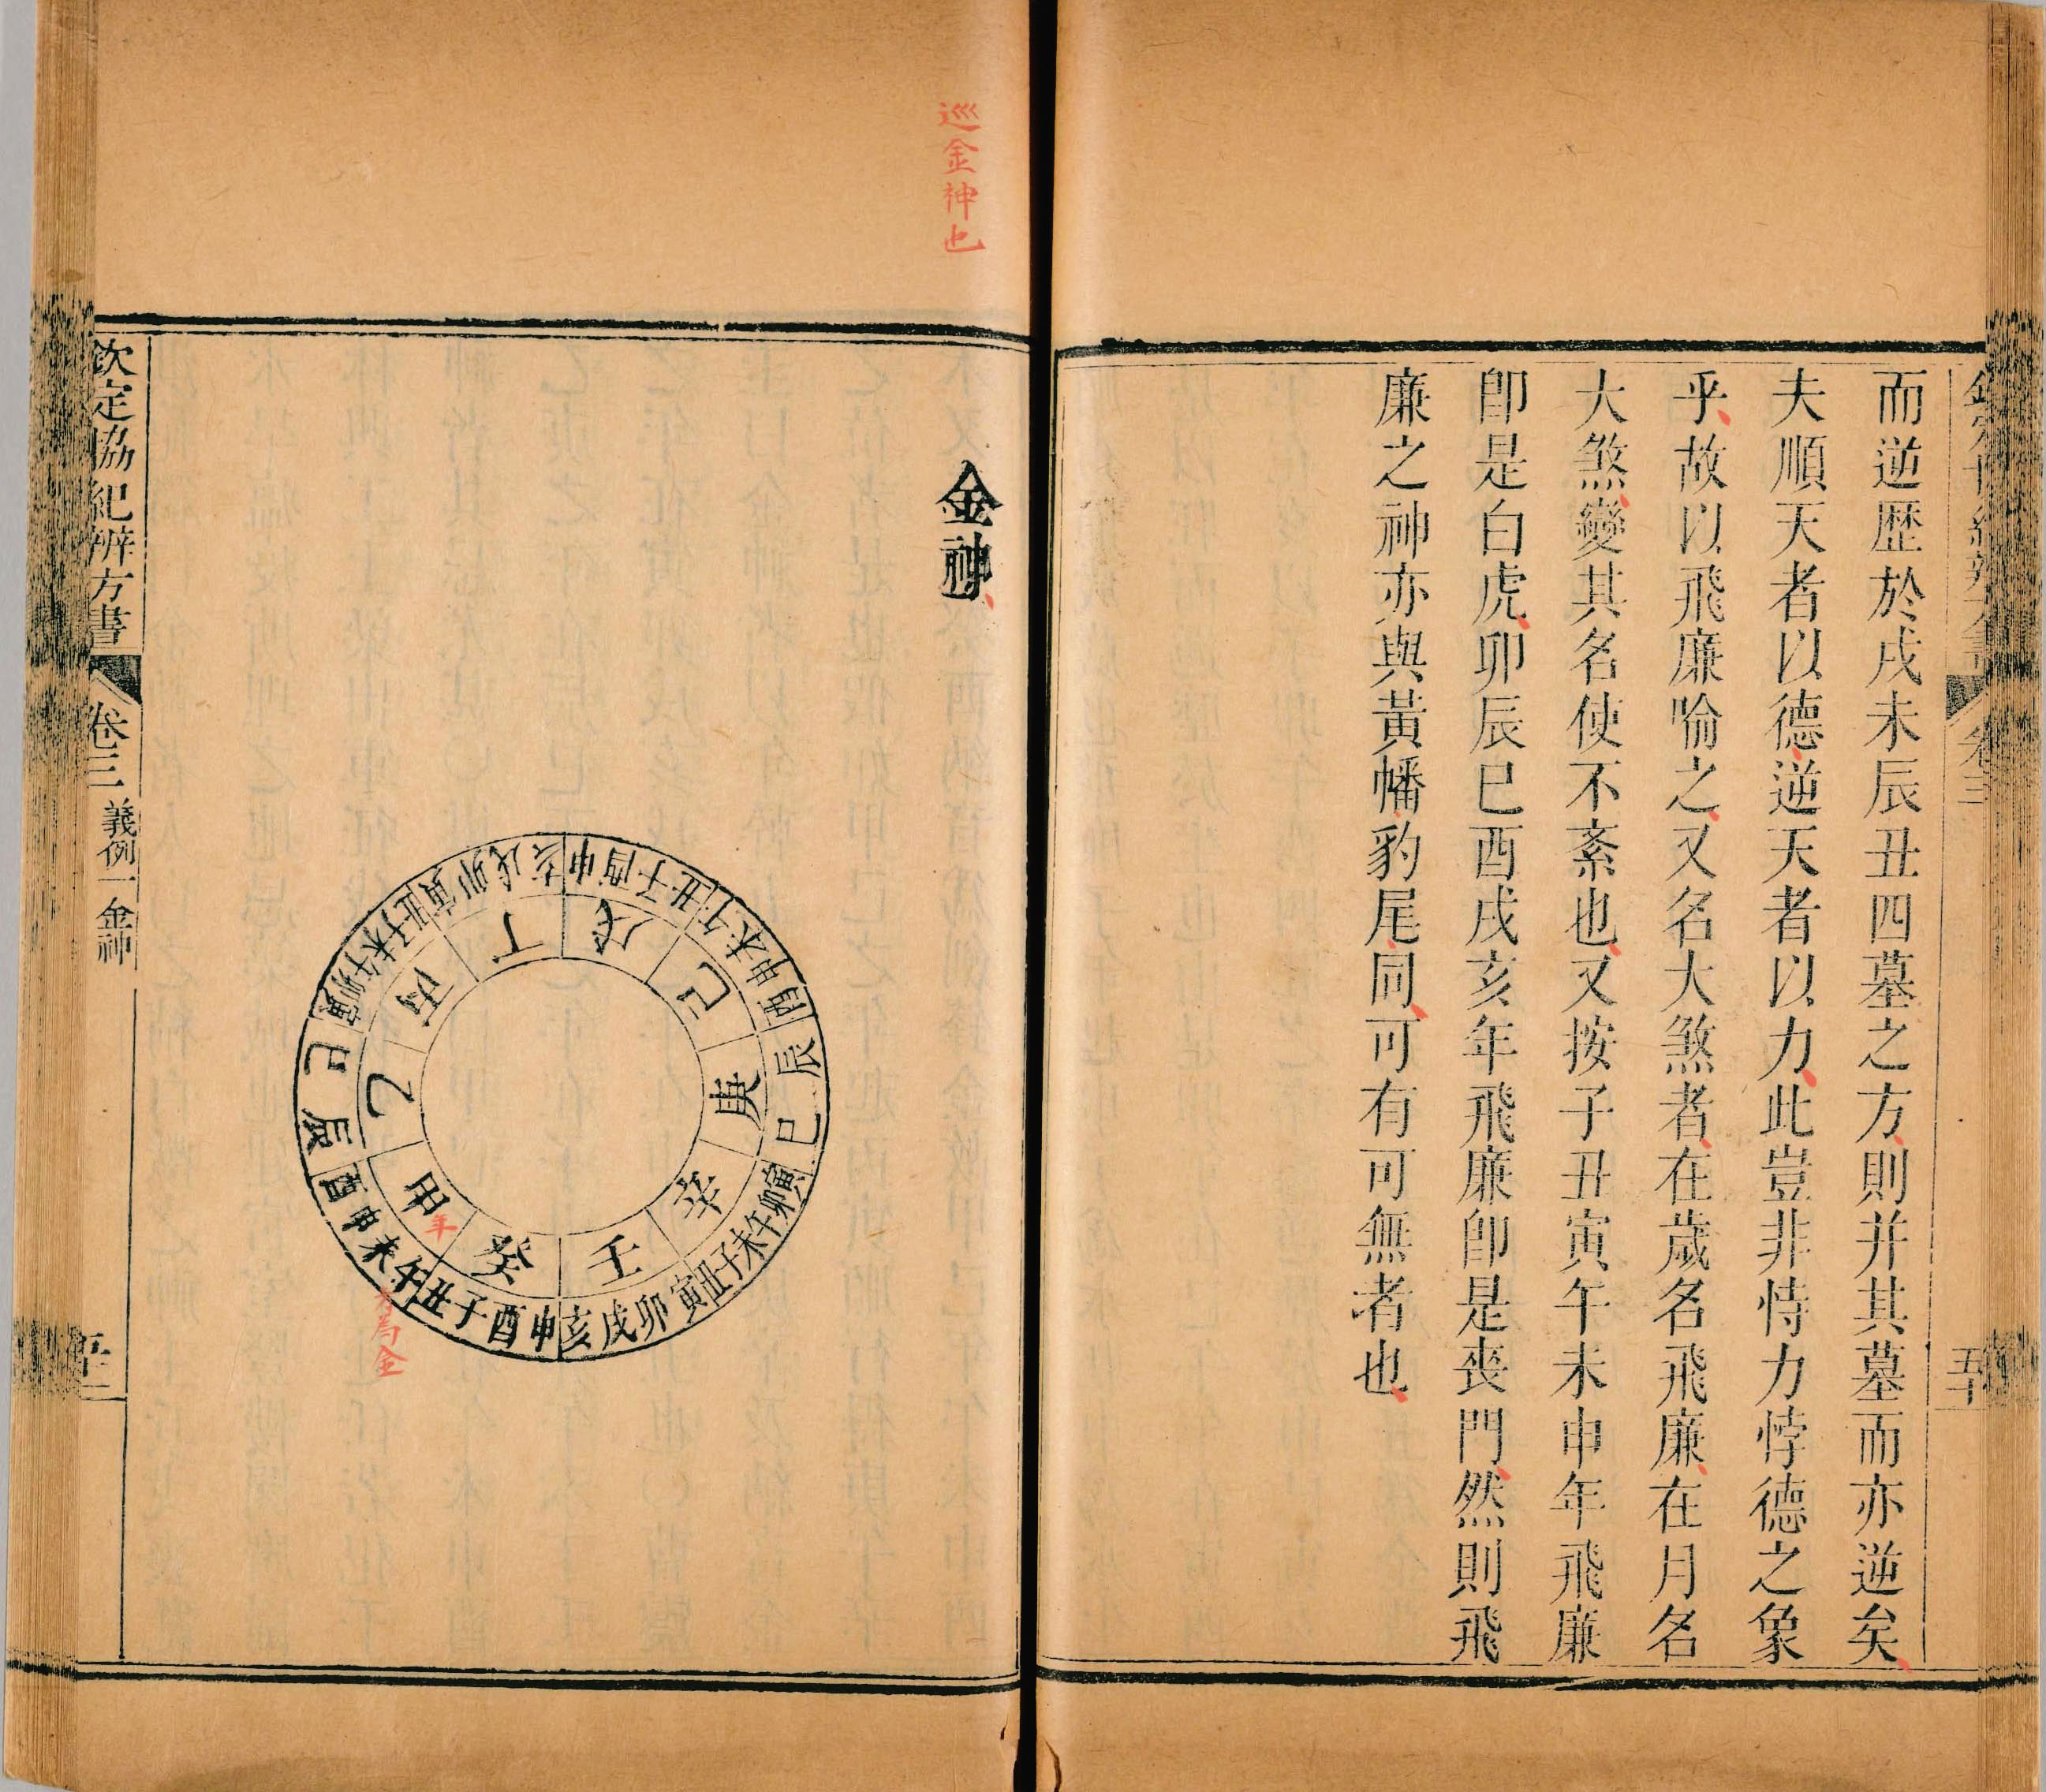 卷三
五十
而逆歴於戌未辰丑四墓之方則并其墓而亦逆矣
夫順天者以德逆天者以力此豈非恃力悖德之象
乎故以飛廉喻之又名大煞者在歲名飛廉在月名
大煞變其名使不紊也又按子丑寅午未申年飛廉
卽是白虎卯辰巳酉戌亥年飛廉卽是喪門然則飛
廉之神亦與黃幡豹尾同可有可無者也
巡金神也
金神
甲
年
午未申酉
為金
乙
辰巳
丙
寅卯午未子丑
丁
寅卯戌亥
戊
申酉子丑
己
午未申酉
庚
辰巳
辛
寅卯午未子丑
壬
寅卯戌亥
癸
申酉子丑
欽定協紀辨方書
卷三
義例一
金神